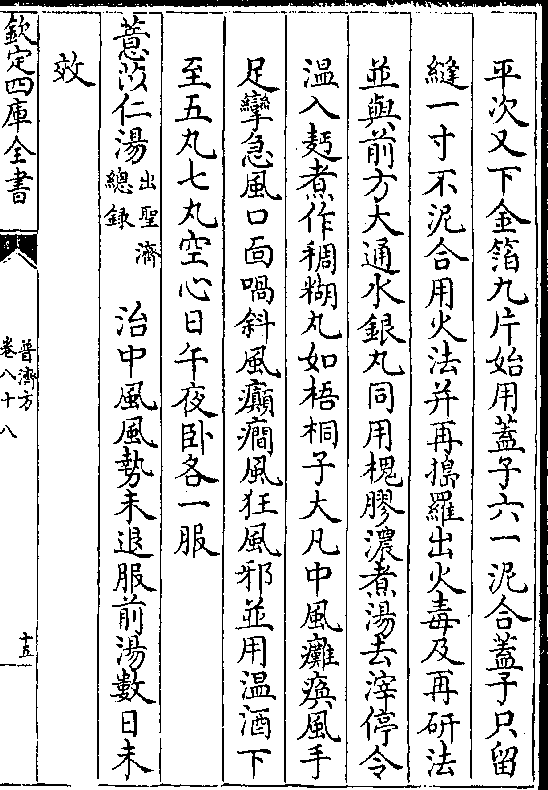 平次又下金箔九片始用蓋子六一泥合蓋子只留
縫一寸不泥合用火法并再搗羅出火毒及再研法
並與前方大通水銀丸同用槐膠濃煮湯去滓停令
温入麪煮作稠糊丸如梧桐子大凡中風癱瘓風手
足攣急風口面喎斜風癲癎風狂風邪並用温酒下
至五丸七丸空心日午夜卧各一服
薏苡仁湯出聖濟總録 治中風風勢未退服前湯數日未
效
欽定四庫全書
普濟方
卷八十八
十五